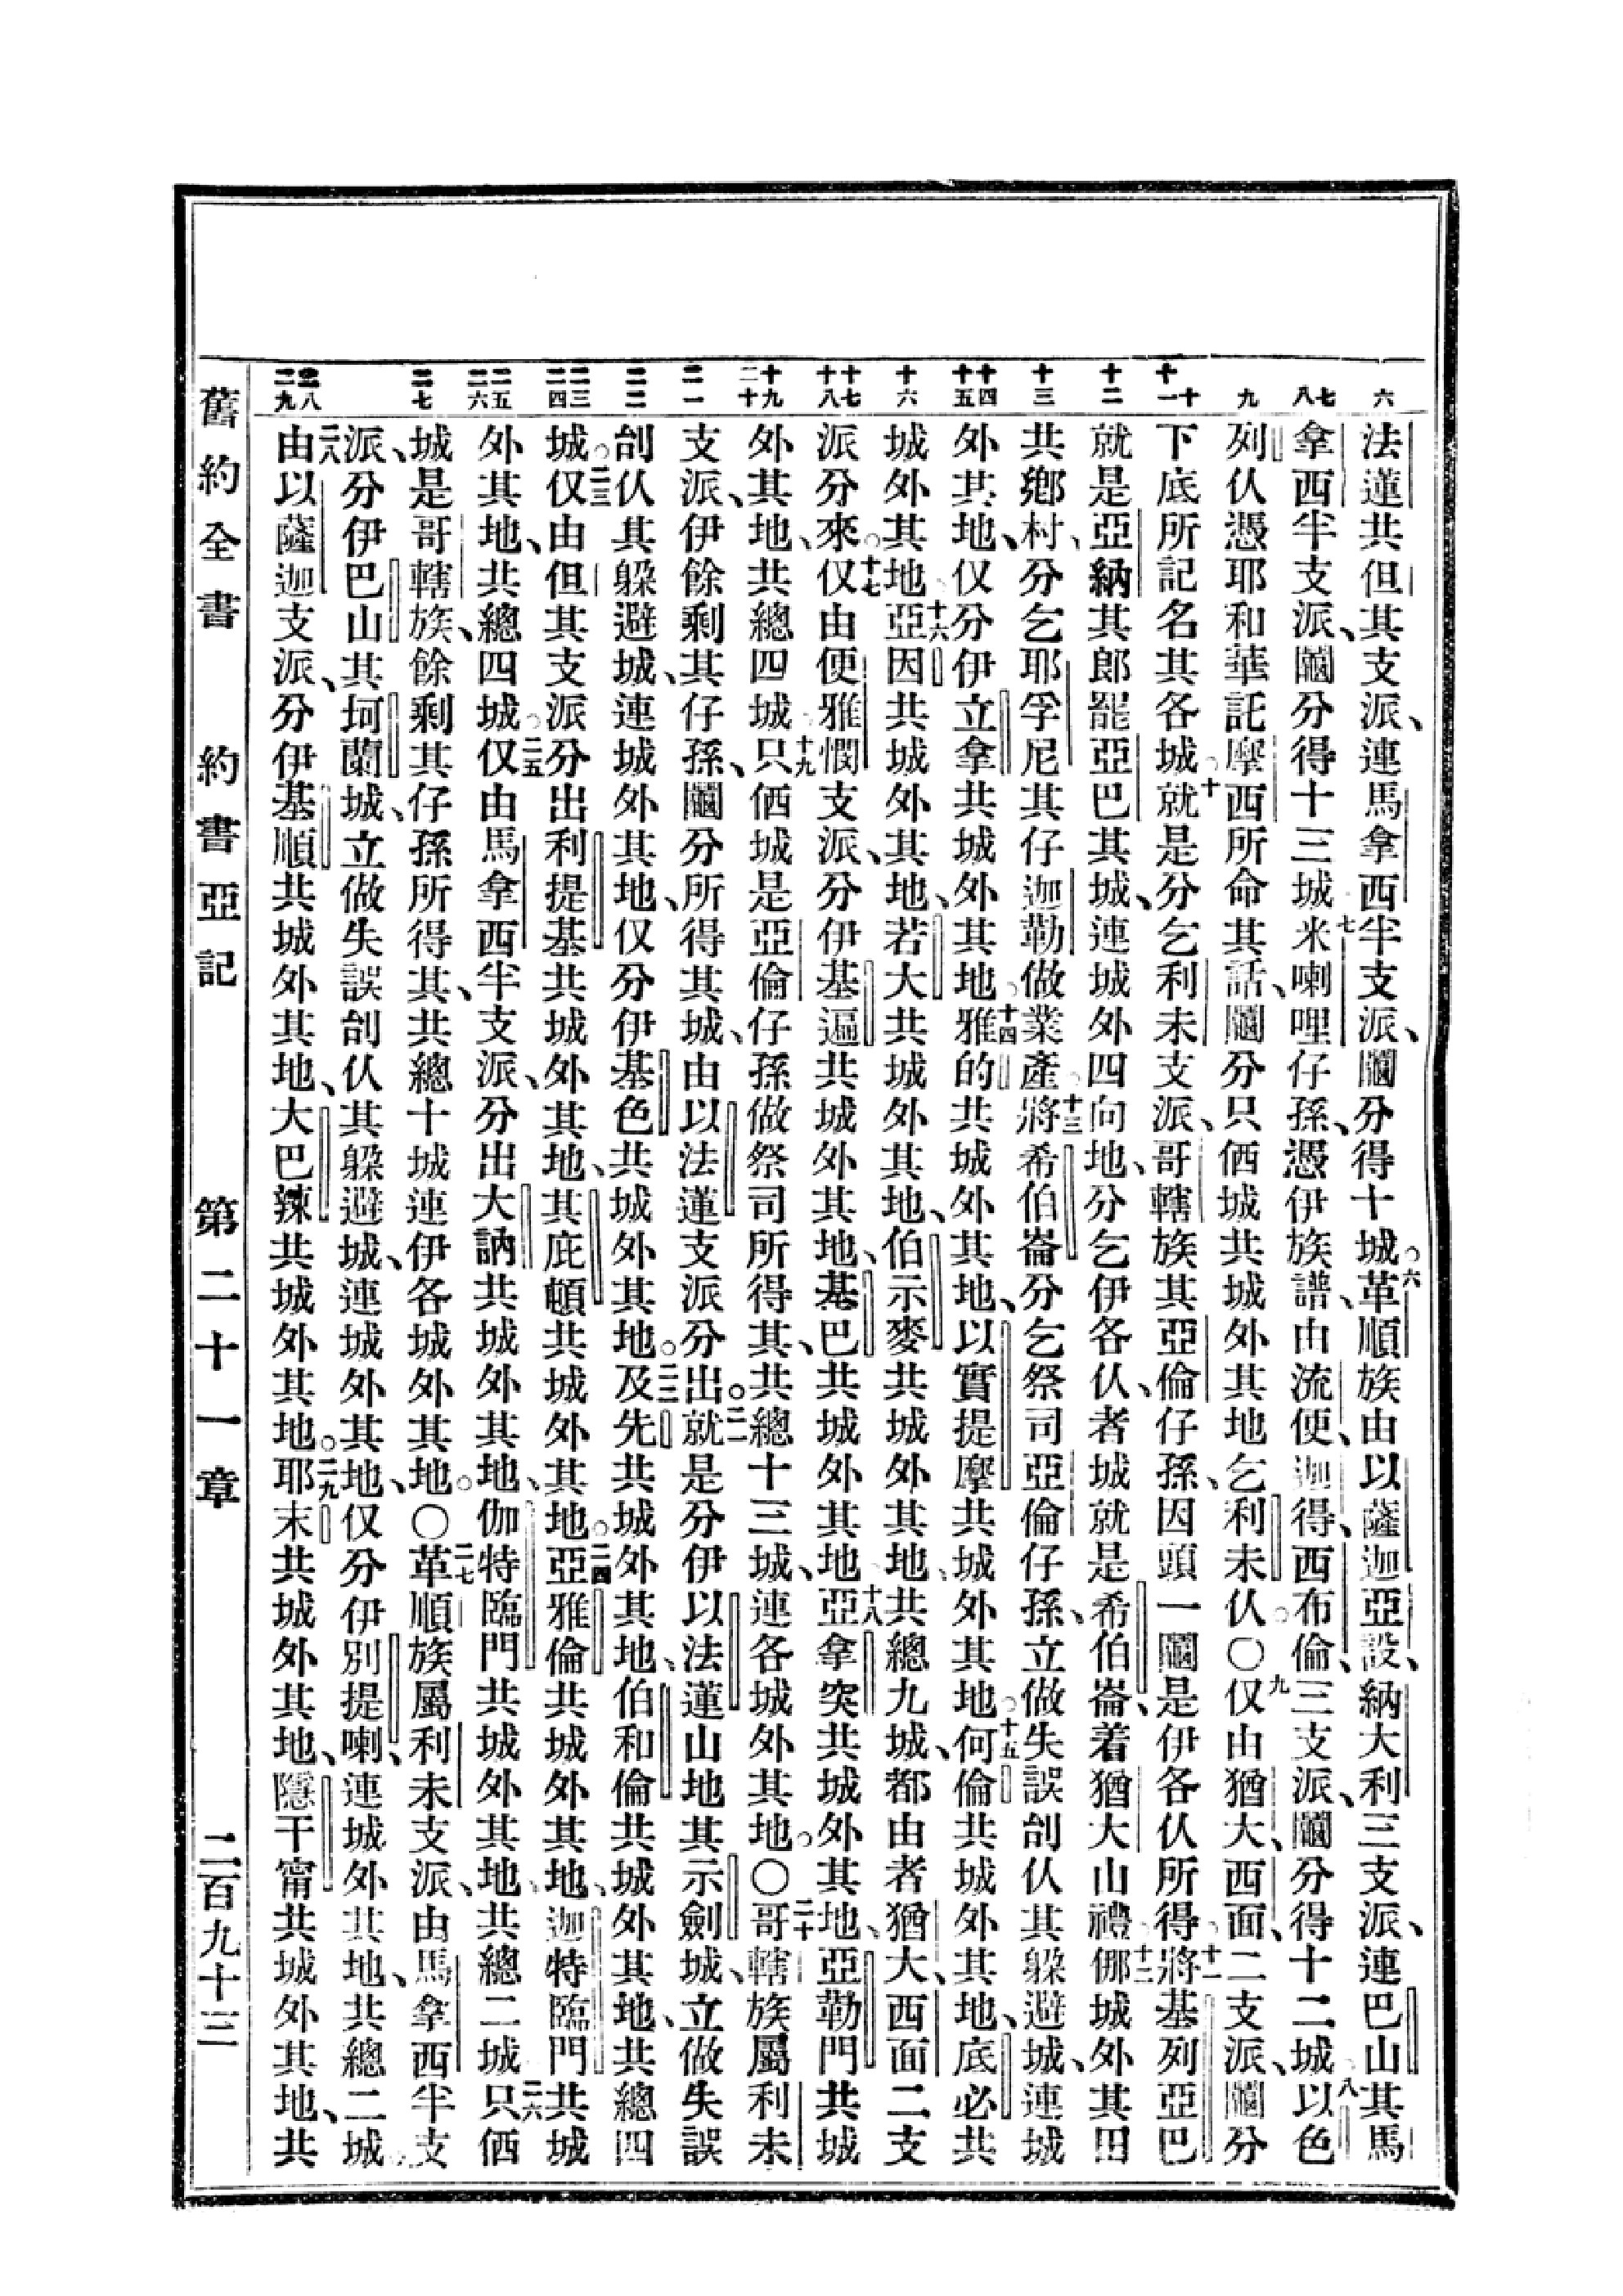 六 七八 九 十十一 十二 十三 十四十五 十六 十七十八 十九二十 二一 二二 二三二四 二五二六 二七 二八二九
法蓮共但其支派、連馬拿西半支派、鬮分得十城。六革順族由以薩迦亞設、納大利三支派、連巴山其馬
拿西半支派、鬮分得十三城七米喇哩仔孫、憑伊族譜、由流便、迦得、西布倫、三支派、鬮分得十二城八以色
列仈憑耶和華託摩西所命其話、鬮分只価城共城外其地乞利未仈。〇九仅由猶大、西面、二支派、鬮分
下底所記名其各城。十就是分乞利未支派、哥轄族其亞倫仔孫、因頭一鬮是伊各仈所得。十一將基列亞巴
就是亞納其郎罷亞巴其城、連城外四向地、分乞伊各仈、者城就是希伯崙、着猶大山禮㑚十二城外其田
共鄉村、分乞耶孚尼其仔迦勒做業產。十三將希伯崙分乞祭司亞倫仔孫、立做失誤刣仈其躲避城、連城
外其地、仅分伊立拿共城外其地。十四雅的共城外其地、以實提摩共城外其地。十五何倫共城外其地、底必共
城外其地。十六亞因共城外其地、若大共城外其地、伯示麥共城外其地、共總九城、都由者猶大、西面二支
派分來。十七仅由便雅憫支派、分伊基遍共城外其地、基巴共城外其地十八亞拿突共城外其地、亞勒門共城
外其地、共總四城。十九只価城是亞倫仔孫做祭司所得其、共總十三城、連各城外其地。〇二十哥轄族屬利未
支派、伊餘剩其仔孫、鬮分所得其城、由以法蓮支派分出。二一就是分伊以法蓮山地其示劍城、立做失誤
刣仈其躲避城、連城外其地、仅分伊基色共城外其地。二二及先共城外其地、伯和倫共城外其地、共總四
城。二三仅由但其支派分出利提基共城外其地、其庇頓共城外其地。二四亞雅倫共城外其地、迦特臨門共城
外其地、共總四城。二五仅由馬拿西半支派、分出大訥共城外其地、伽特臨門共城外其地、共總二城二六只価
城是哥轄族、餘剩其仔孫所得其、共總十城連伊各城外其地。〇二七革順族屬利未支派、由馬拿西半支
派、分伊巴山其坷蘭城、立做失誤刣仈其躲避城、連城外其地、仅分伊別提喇、連城外其地、共總二城。
二八由以薩迦支派、分伊基順共城外其地、大巴辣共城外其地。二九耶末共城外其地、隱干甯共城外其地、共
舊約全書 約書亞記 第二十一章 二百九十三